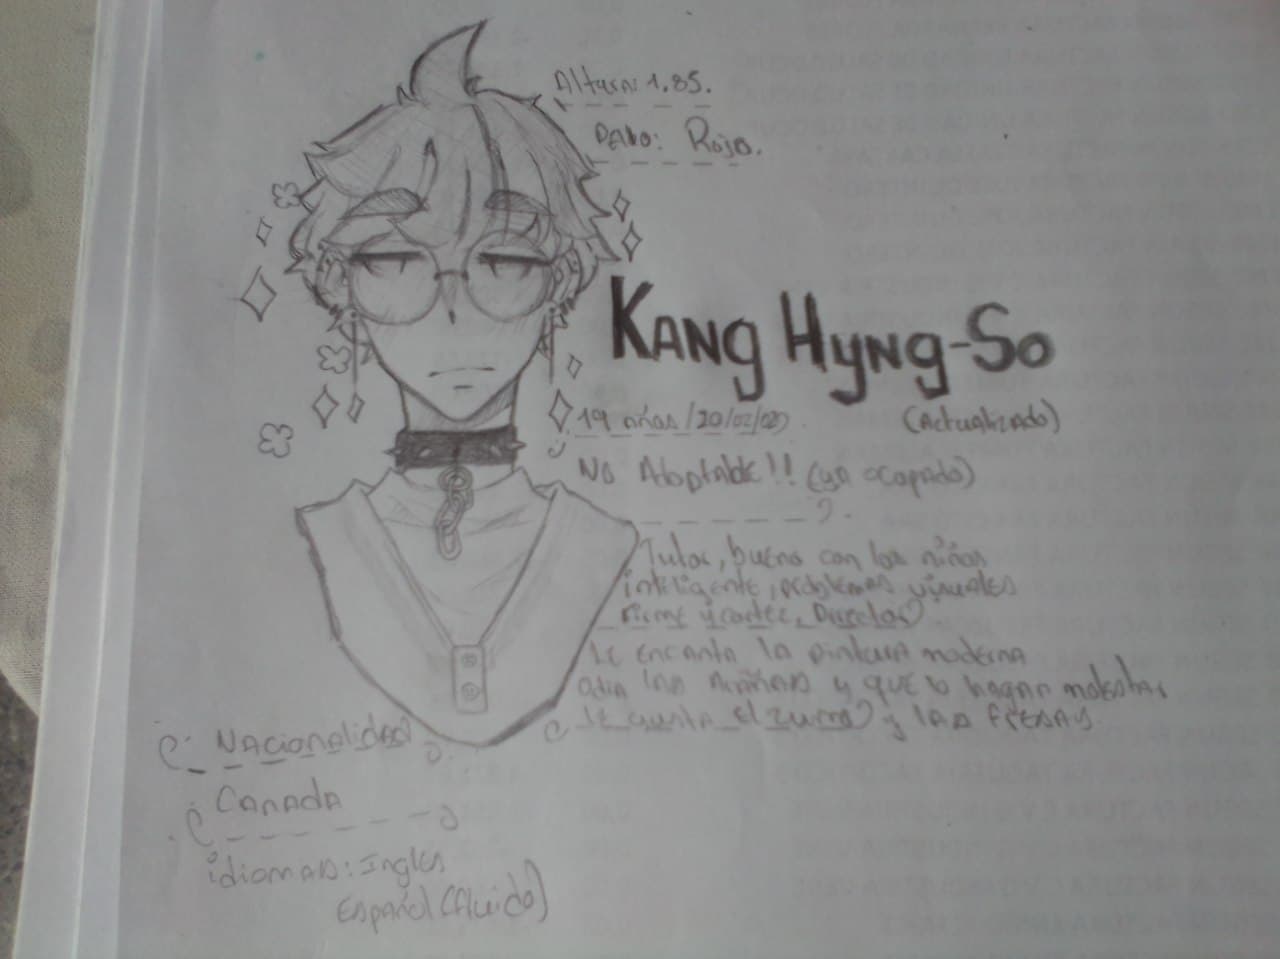 Altura: 1.85.
Pelo: Rojo.
Kang Hyng-So
19 años / 20/02/
(Actualizado)
No Adoptable!! (ya ocupado)
Tutor, bueno con los niños
inteligente, problemas visuales
firme y cortez, Director
Le encanta la pintura moderna
Odia las arañas y que lo hagan molestar
Le gusta el zumo y las fresas.
Nacionalidad
Canada
idiomas: Ingles
Español (fluido)